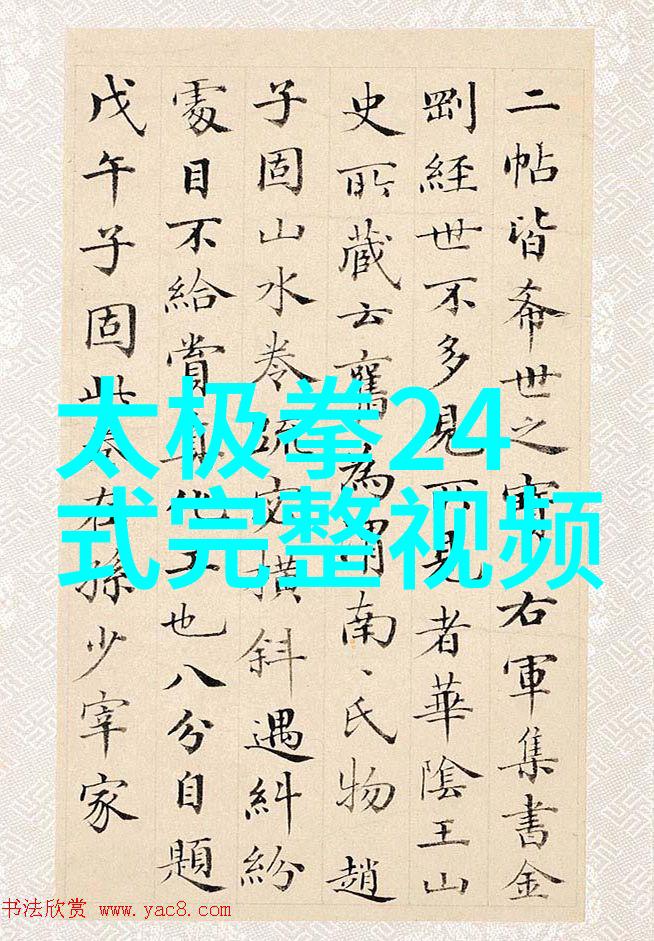 太极拳24
式完整视频
二帖皆希世之右軍集書金
剛經世不多見所見者華陰王山
史所藏云舊為南、氏物趙
子固山水卷疏橫斜遇糾紛
處目不給賞也八分自題
戊午子固此卷在孫少宰家
书法欣赏 www.yac8.com